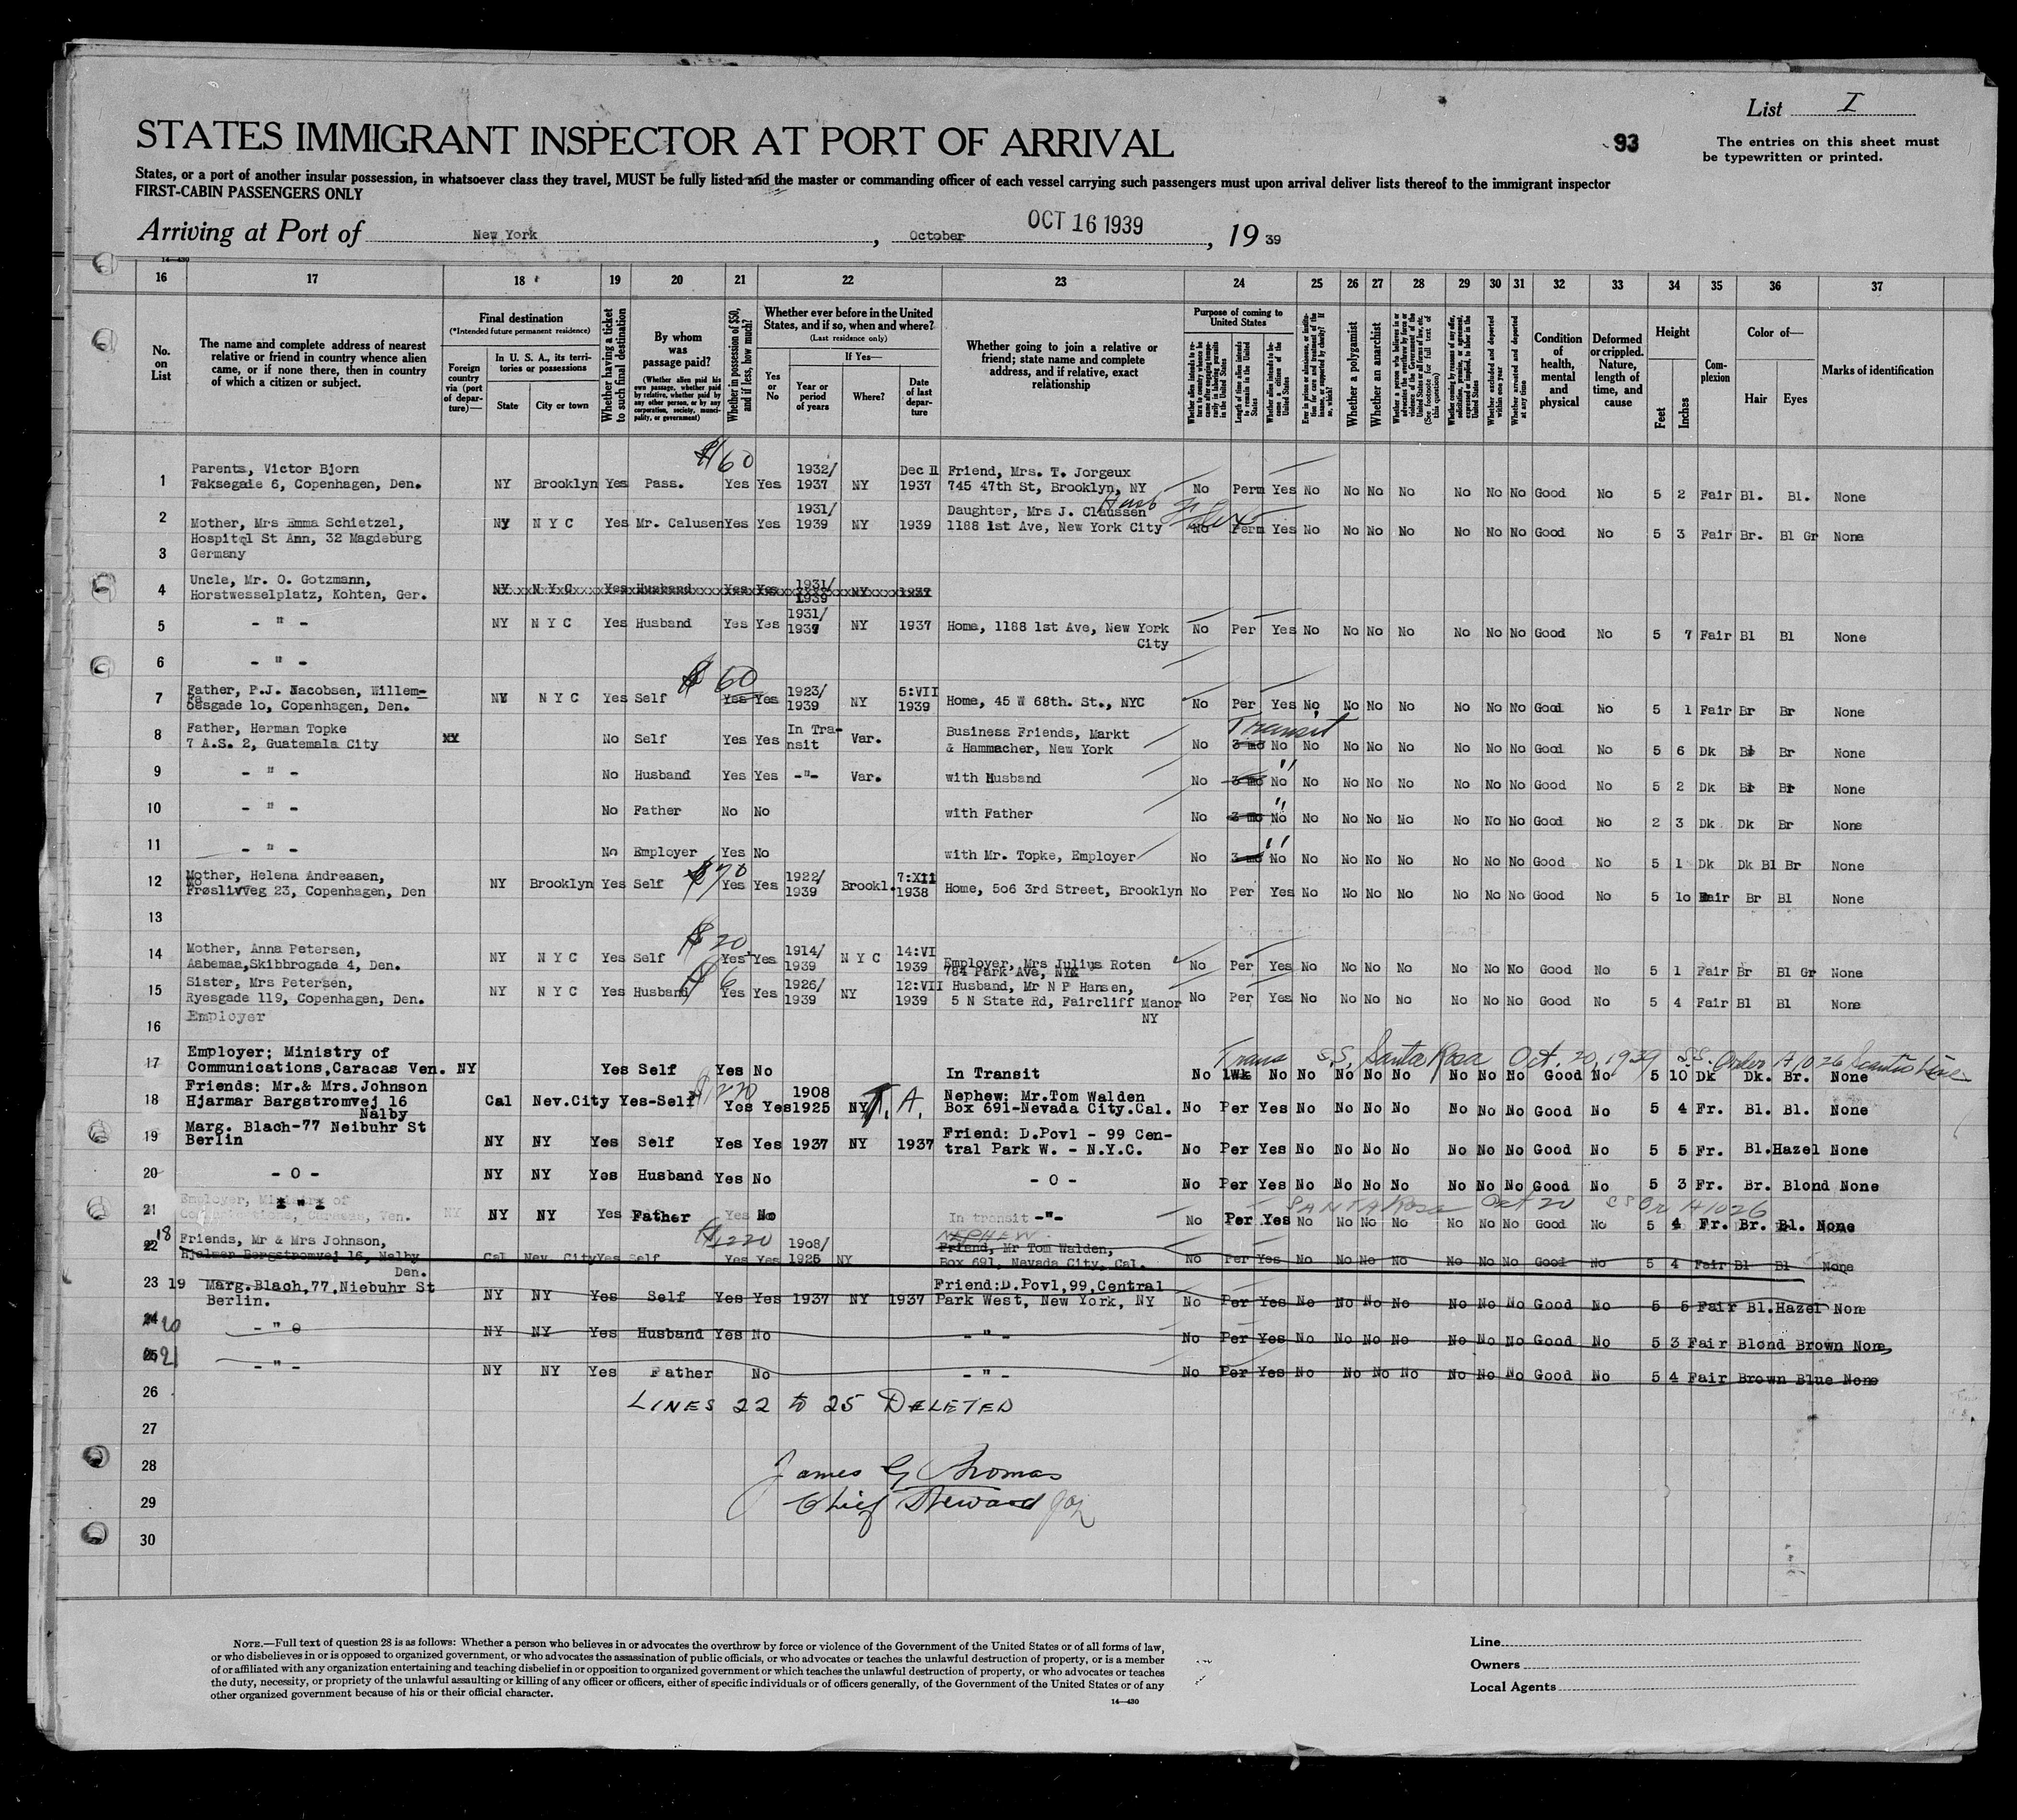 List I
STATES IMMIGRANT INSPECTOR AT PORT OF ARRIVAL
93
The entries on this sheet must
be typewritten or printed.
States, or a port of another insular possession, in whatsoever class they travel, MUST be fully listed and the master or commanding officer of each vessel carrying such passengers must upon arrival deliver lists thereof to the immigrant inspector
FIRST-CABIN PASSENGERS ONLY
Arriving at Port of New York, October OCT 16 1939, 19 39
14—430
16 17 18 19 20 21 22 23 24 25 26 27 28 29 30 31 32 33 34 35 36 37
No. on List
The name and complete address of nearest relative or friend in country whence alien came, or if none there, then in country of which a citizen or subject.
Final destination
(*Intended future permanent residence)
Foreign country via (port of departure)—
In U. S. A., its territories or possessions
State
City or town
Whether having a ticket to such final destination
By whom was passage paid?
(Whether alien paid his own passage, whether paid by relative, whether paid by any other person, or by any corporation, society, municipality, or government)
Whether in possession of $50, and if less, how much?
Whether ever before in the United States, and if so, when and where?
(Last residence only)
Yes or No
If Yes—
Year or period of years
Where?
Date of last departure
Whether going to join a relative or friend; state name and complete address, and if relative, exact relationship
Purpose of coming to United States
Whether alien intends to return to country whence he came after engaging temporarily in laboring pursuits in the United States
Length of time alien intends to remain in the United States
Whether alien intends to become a citizen of the United States
Whether a polygamist
Whether an anarchist
Whether excluded and deported within one year
Whether arrested and deported at any time
Condition of health, mental and physical
Deformed or crippled. Nature, length of time, and cause
Height
Feet
Inches
Complexion
Color of—
Hair
Eyes
Marks of identification
$160
1 Parents, Victor Bjorn
Faksegaie 6, Copenhagen, Den. NY Brooklyn Yes Pass. Yes Yes 1932/ 1937 NY Dec 11 1937 Friend, Mrs. T. Jorgeux
745 47th St, Brooklyn, NY No Perm Yes No No No No No No No Good No 5 2 Fair Bl. Bl. None
2 Mother, Mrs Emma Schietzel, NY N Y C Yes Mr. Calusen Yes Yes 1931/ 1939 NY 1939 Daughter, Mrs J. Claussen
1188 1st Ave, New York City No Perm Yes No No No No No No No Good No 5 3 Fair Br. Bl Gr None
Hospitel St Ann, 32 Magdeburg
3 Germany
4 Uncle, Mr. O. Gotzmann,
Horstwesselplatz, Kohten, Ger. NY N Y C Yes Husband Yes Yes 1931/ 1939 NY 1937
5 - " - NY N Y C Yes Husband Yes Yes 1931/ 1937 NY 1937 Home, 1188 1st Ave, New York
City No Per Yes No No No No No No No Good No 5 7 Fair Bl Bl None
6 - " -
$60
7 Father, P.J. Jacobsen, Willem-
oesgade 1o, Copenhagen, Den. NY N Y C Yes Self Yes Yes 1923/ 1939 NY 5:VII 1939 Home, 45 W 68th. St., NYC No Per Yes No No No No No No No Good No 5 1 Fair Br Br None
8 Father, Herman Topke
7 A.S. 2, Guatemala City No Self Yes Yes In Tra-nsit Var. Business Friends, Markt
& Hammacher, New York No 3 mo Transit No No No No No No No No Good No 5 6 Dk Bl Br None
9 - " - No Husband Yes Yes -"- Var. with Husband No 3 mo " No No No No No No No No Good No 5 2 Dk Br Br None
10 - " - No Father No No with Father No 3 mo " No No No No No No No No Good No 2 3 Dk Dk Br None
11 - " - No Employer Yes No with Mr. Topke, Employer No 3 mo " No No No No No No No No Good No 5 1 Dk Dk Bl Br None
$70
12 Mother, Helena Andreasen,
Frøslivveg 23, Copenhagen, Den NY Brooklyn Yes Self Yes Yes 1922/ 1939 Brookl. 7:XII 1938 Home, 5o6 3rd Street, Brooklyn No Per Yes No No No No No No No Good No 5 1o Fair Br Bl None
13
$20
14 Mother, Anna Petersen,
Aabemaa,Skibbrogade 4, Den. NY N Y C Yes Self Yes Yes 1914/ 1939 N Y C 14:VI 1939 Employer, Mrs Julius Roten
784 Park Ave, NYC No Per Yes No No No No No No No Good No 5 1 Fair Br Bl Gr None
$6
15 Sister, Mrs Petersen,
Ryesgade 119, Copenhagen, Den. NY N Y C Yes Husband Yes Yes 1926/ 1939 NY 12:VII 1939 Husband, Mr N P Hansen,
5 N State Rd, Faircliff Manor
NY No Per Yes No No No No No No No Good No 5 4 Fair Bl Bl None
16 Employer
Trans S.S. Santa Rosa Oct. 20, 1939
17 Employer; Ministry of
Communications,Caracas Ven. NY Yes Self Yes No In Transit No 1Wk No No No No No No No No Good No 5 10 Dk Dk. Br. None
$1220
18 Friends: Mr.& Mrs.Johnson
Hjarmar Bargstromvej 16
Nalby Cal Nev.City Yes-Self Yes Yes 1908 1925 NY T.A. Nephew: Mr.Tom Walden
Box 691-Nevada City.Cal. No Per Yes No No No No No No No Good No 5 4 Fr. Bl. Bl. None
19 Marg. Blach-77 Neibuhr St
Berlin NY NY Yes Self Yes Yes 1937 NY 1937 Friend: D.Povl - 99 Cen-
tral Park W. - N.Y.C. No Per Yes No No No No No No No Good No 5 5 Fr. Bl. Hazel None
20 - O - NY NY Yes Husband Yes No - O - No Per Yes No No No No No No No Good No 5 3 Fr. Br. Blond None
SANTA Rosa Oct 20
21 Employer, Ministry of
Communications, Caracas, Ven. NY NY NY Yes Father Yes No In transit -"- No Per Yes No No No No No No No Good No 5 4 Fr. Br. Bl. None
$1220 NEPHEW
22 18 Friends, Mr & Mrs Johnson,
Hjalmer Bergstromvej 16, Nalby
Den. Cal Nev. City Yes Self Yes Yes 19o8/ 1925 NY Friend, Mr Tom Walden,
Box 691, Nevada City, Cal. No Per Yes No No No No No No No Good No 5 4 Fair Bl Bl None
23 19 Marg.Blach,77,Niebuhr St
Berlin. NY NY Yes Self Yes Yes 1937 NY 1937 Friend:D.Povl,99,Central
Park West, New York, NY No Per Yes No No No No No No No Good No 5 5 Fair Bl. Hazel None
24 20 - " - NY NY Yes Husband Yes No - " - No Per Yes No No No No No No No Good No 5 3 Fair Blond Brown None,
25 21 - " - NY NY Yes Father No - " - No Per Yes No No No No No No No Good No 5 4 Fair Brown Blue None
26 LINES 22 to 25 DELETED
27
28 James G Thomas
29 Chief Steward
30
NOTE.—Full text of question 28 is as follows: Whether a person who believes in or advocates the overthrow by force or violence of the Government of the United States or of all forms of law,
or who disbelieves in or is opposed to organized government, or who advocates the assassination of public officials, or who advocates or teaches the unlawful destruction of property, or is a member
of or affiliated with any organization entertaining and teaching disbelief in or opposition to organized government or which teaches the unlawful destruction of property, or who advocates or teaches
the duty, necessity, or propriety of the unlawful assaulting or killing of any officer or officers, either of specific individuals or of officers generally, of the Government of the United States or of any
other organized government because of his or their official character.
14—430
Line
Owners
Local Agents